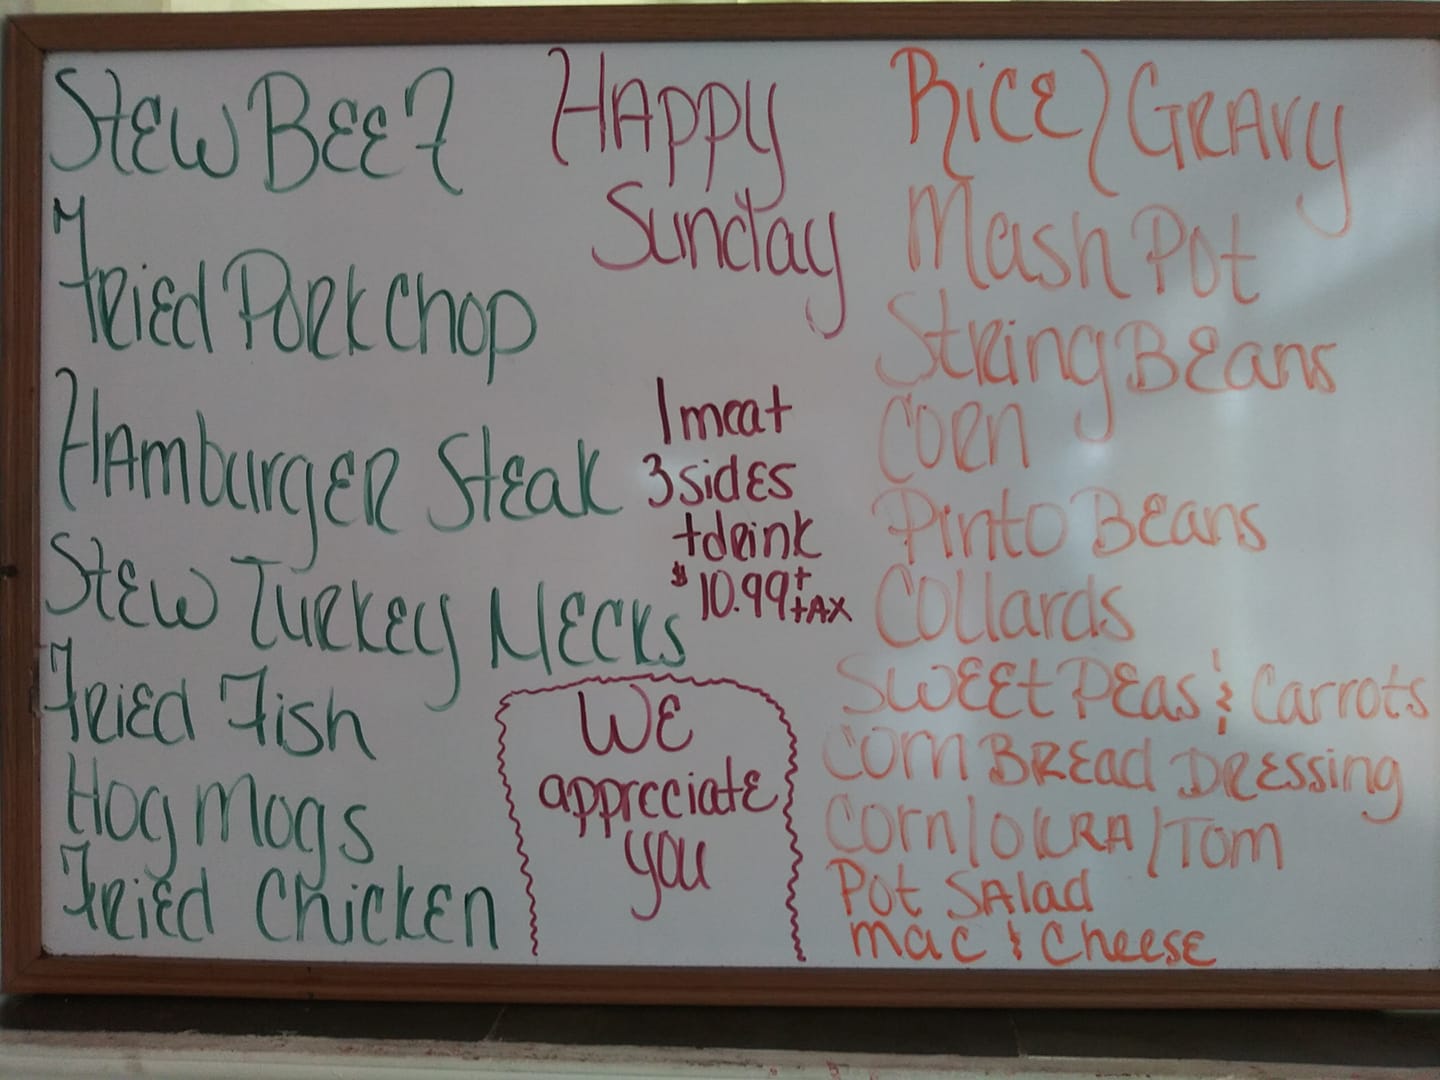 Stew Beef
Fried Pork Chop
Hamburger Steak
Stew Turkey Necks
Fried Fish
Hog Mogs
Fried Chicken
Happy
Sunday
1 meat
3 sides
+ drink
$10.99 + tax
We
appreciate
you
Rice / Gravy
Mash Pot
String Beans
Corn
Pinto Beans
Collards
Sweet Peas & Carrots
Corn Bread Dressing
Corn / Okra / Tom
Pot Salad
Mac & Cheese